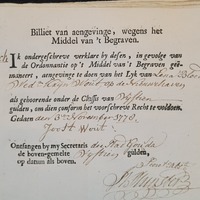 Billiet van aengevinge, wegens het
Middel van 't Begraven.
Ik ondergeschreve verklare by desen, in gevolge van
de Ordonnantie op 't Middel van 't Begraven geë-
maneert, aengevinge te doen van het Lyk van
Wout op de
als gehoorende onder de Classis van Vyftien
gulden, om dien conform het voorschreve Recht te voldoen.
Gedaen den 3 November 1770
Joost Wout
Ontfangen by my Secretaris der Stad Gouda
de boven-gemelte Vyftien gulden,
op datum als boven.